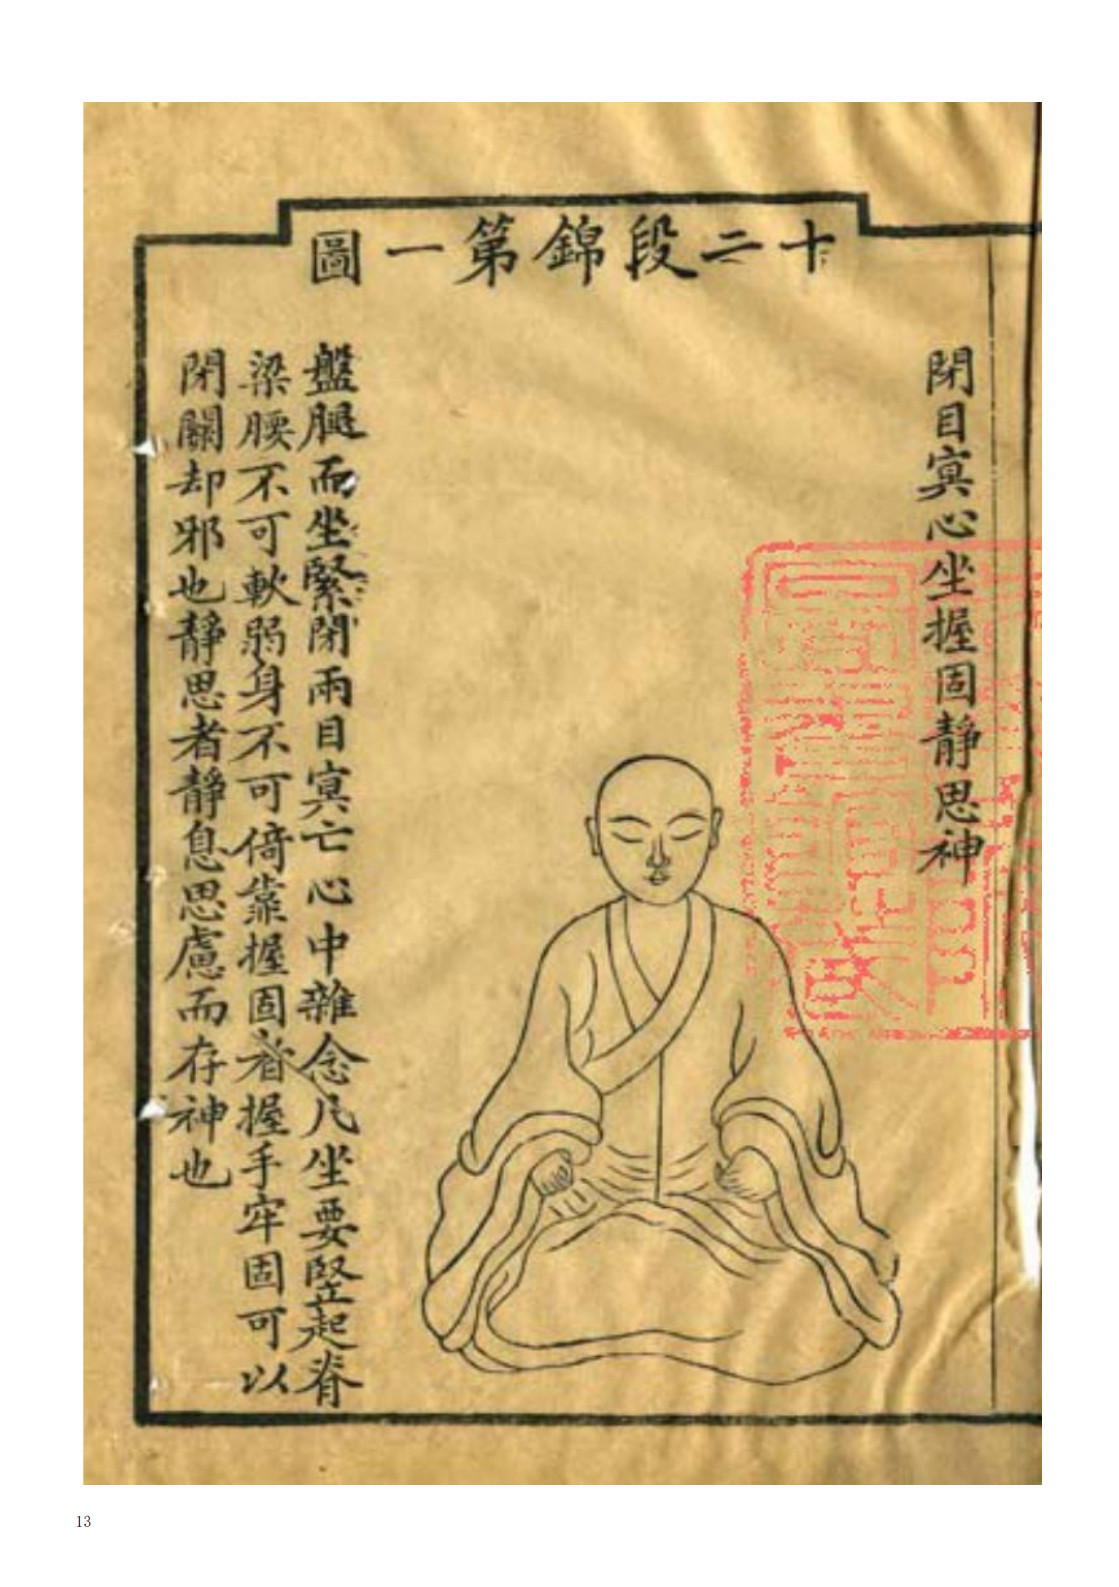 十二段錦第一圖
閉目寞心坐握固靜思神
盤腿而坐緊閉兩目寞亡心中雜念凡坐要竪起脊
梁腰不可軟弱身不可倚靠握固者握手牢固可以
閉關却邪也靜思者靜息思慮而存神也
13